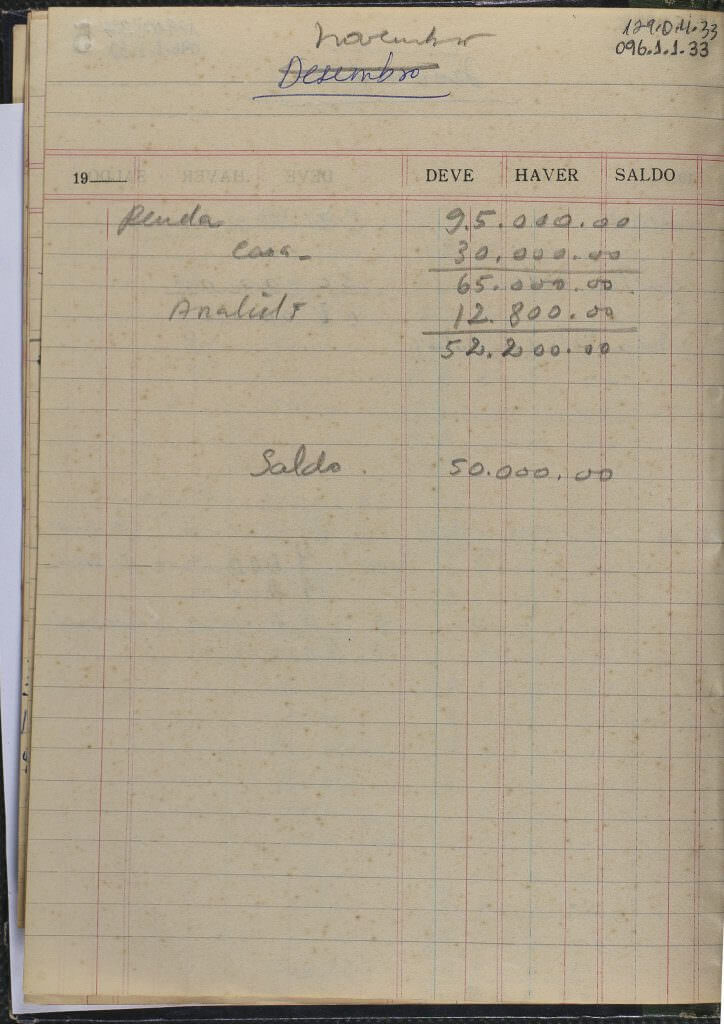 novembro 129.0.4.33
Desembro 096.1.1.33
19 DEVE HAVER SALDO
Renda 95.000.00
Casa 30.000.00
65.000.00
12.800.00
52.200.00
Saldo. 50.000.00